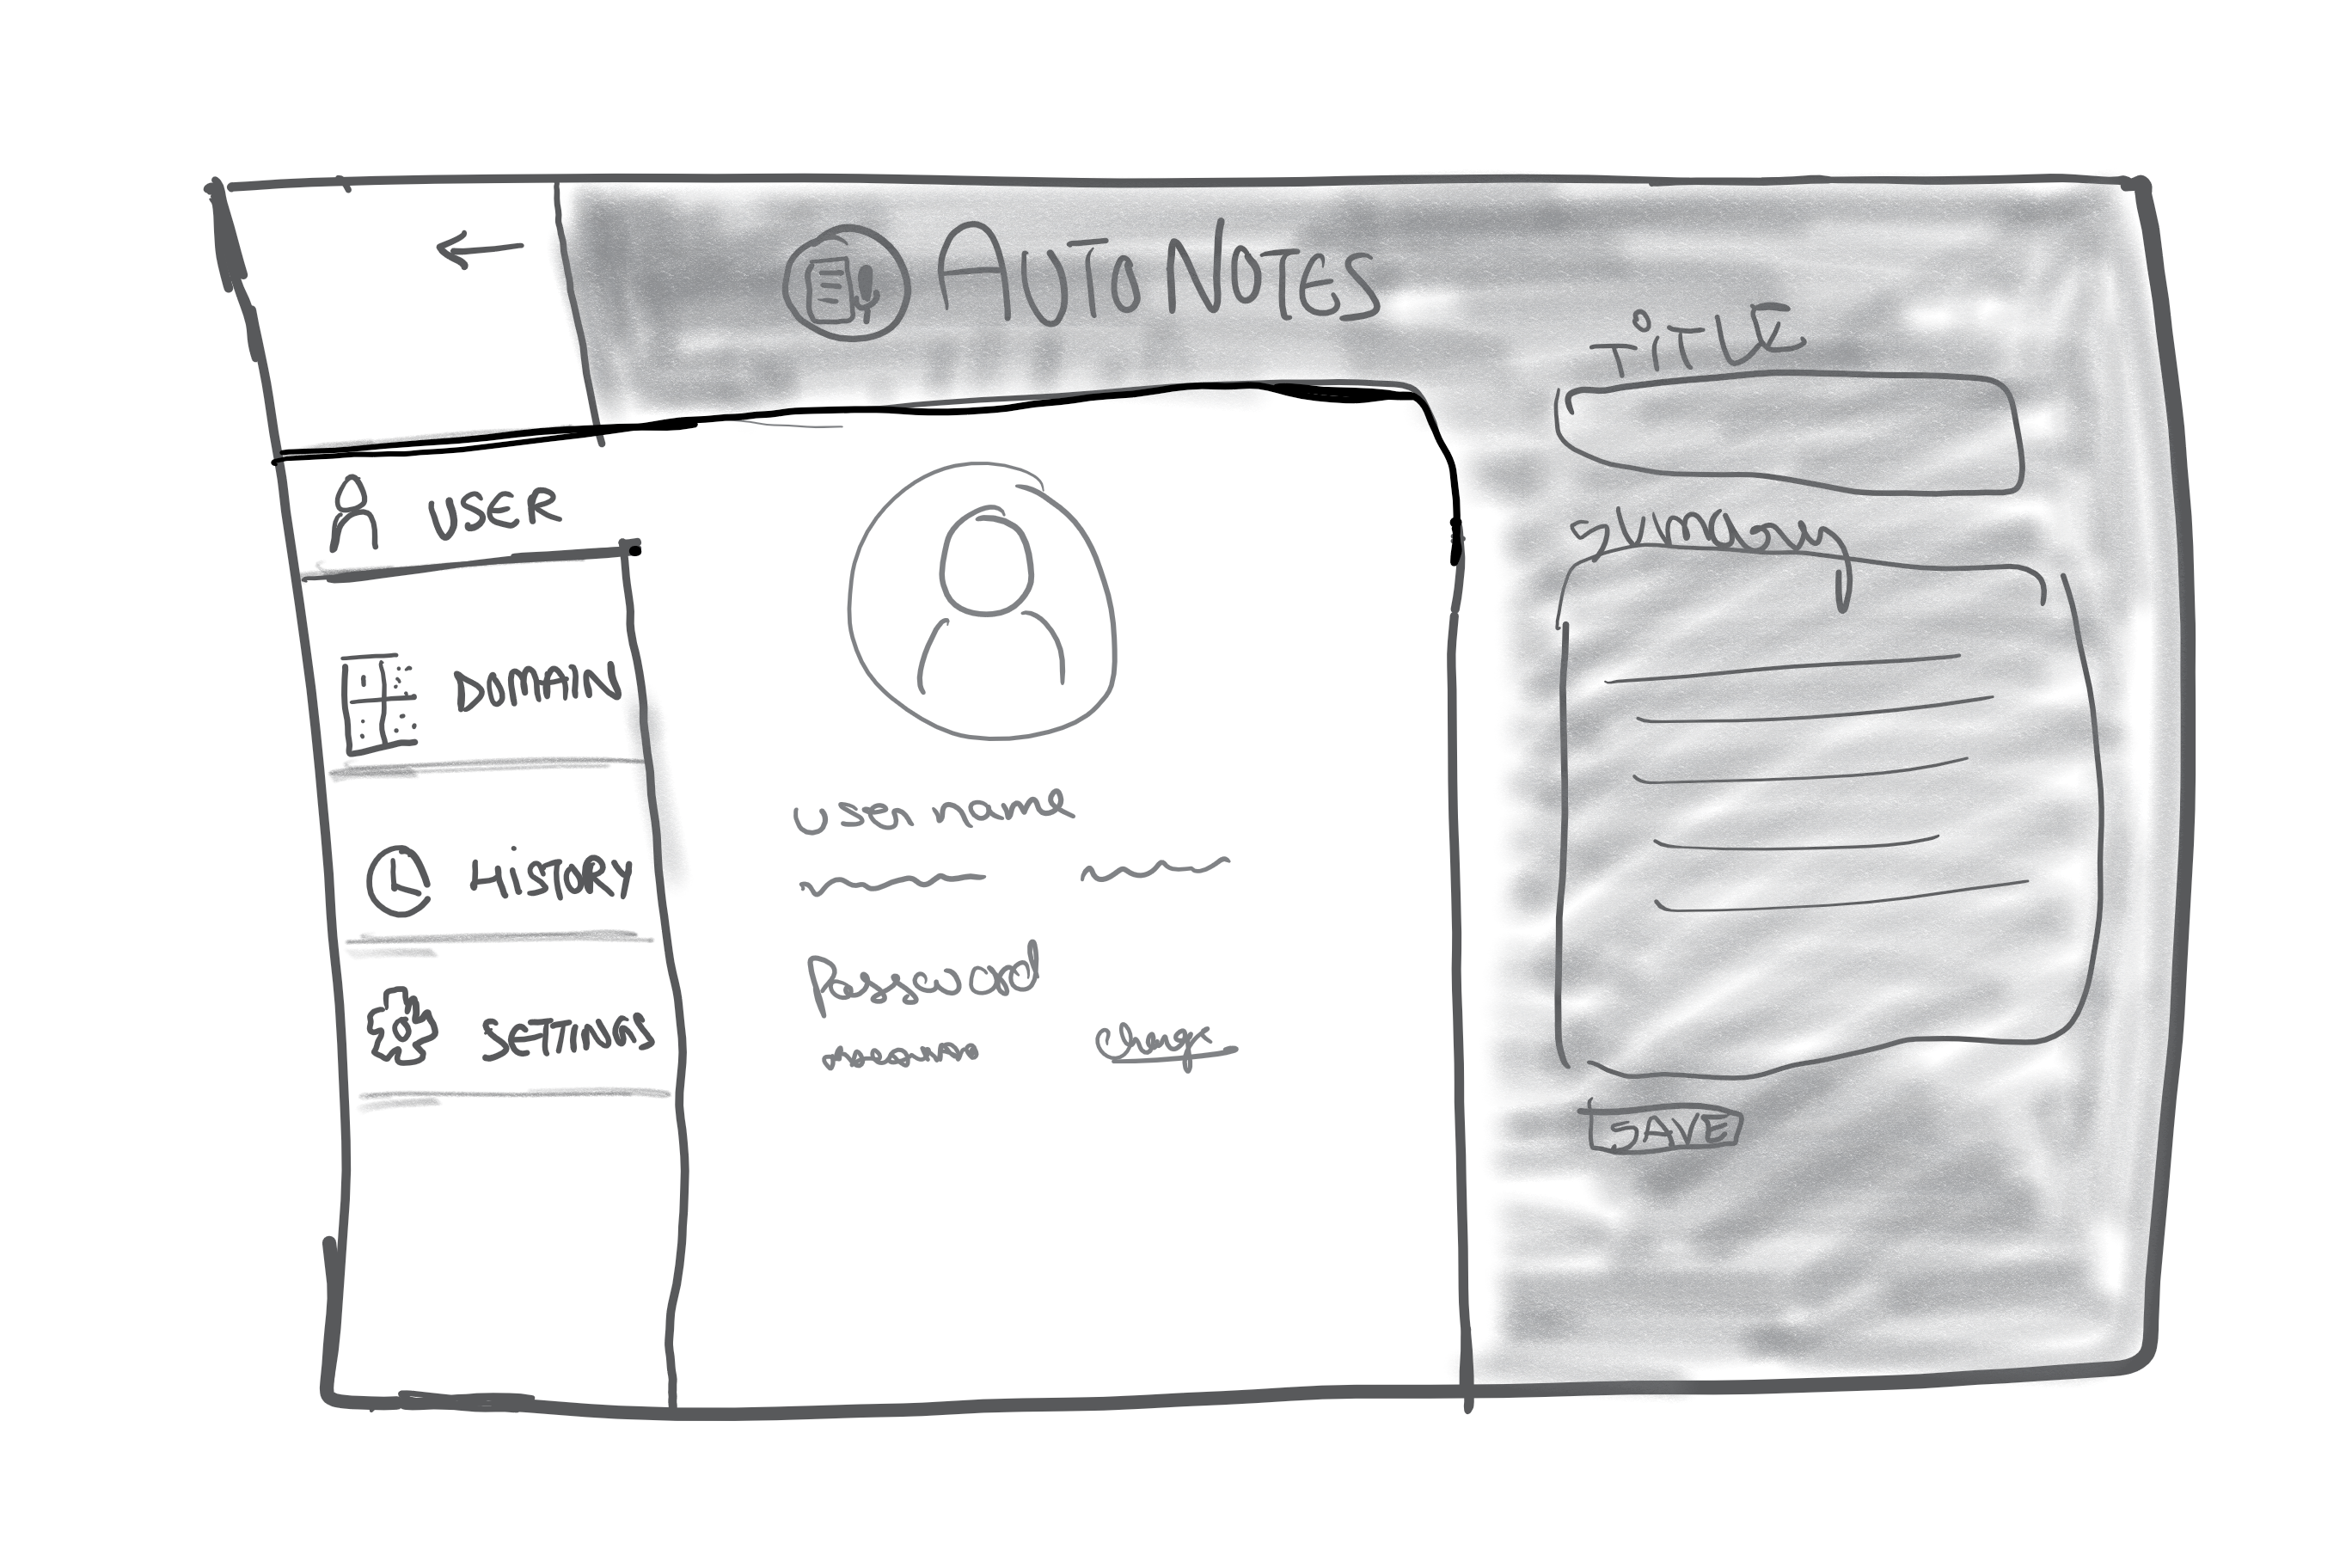 AUTO NOTES
USER
DOMAIN
HISTORY
SETTINGS
user name
Password
change
TiTLE
summary
SAVE